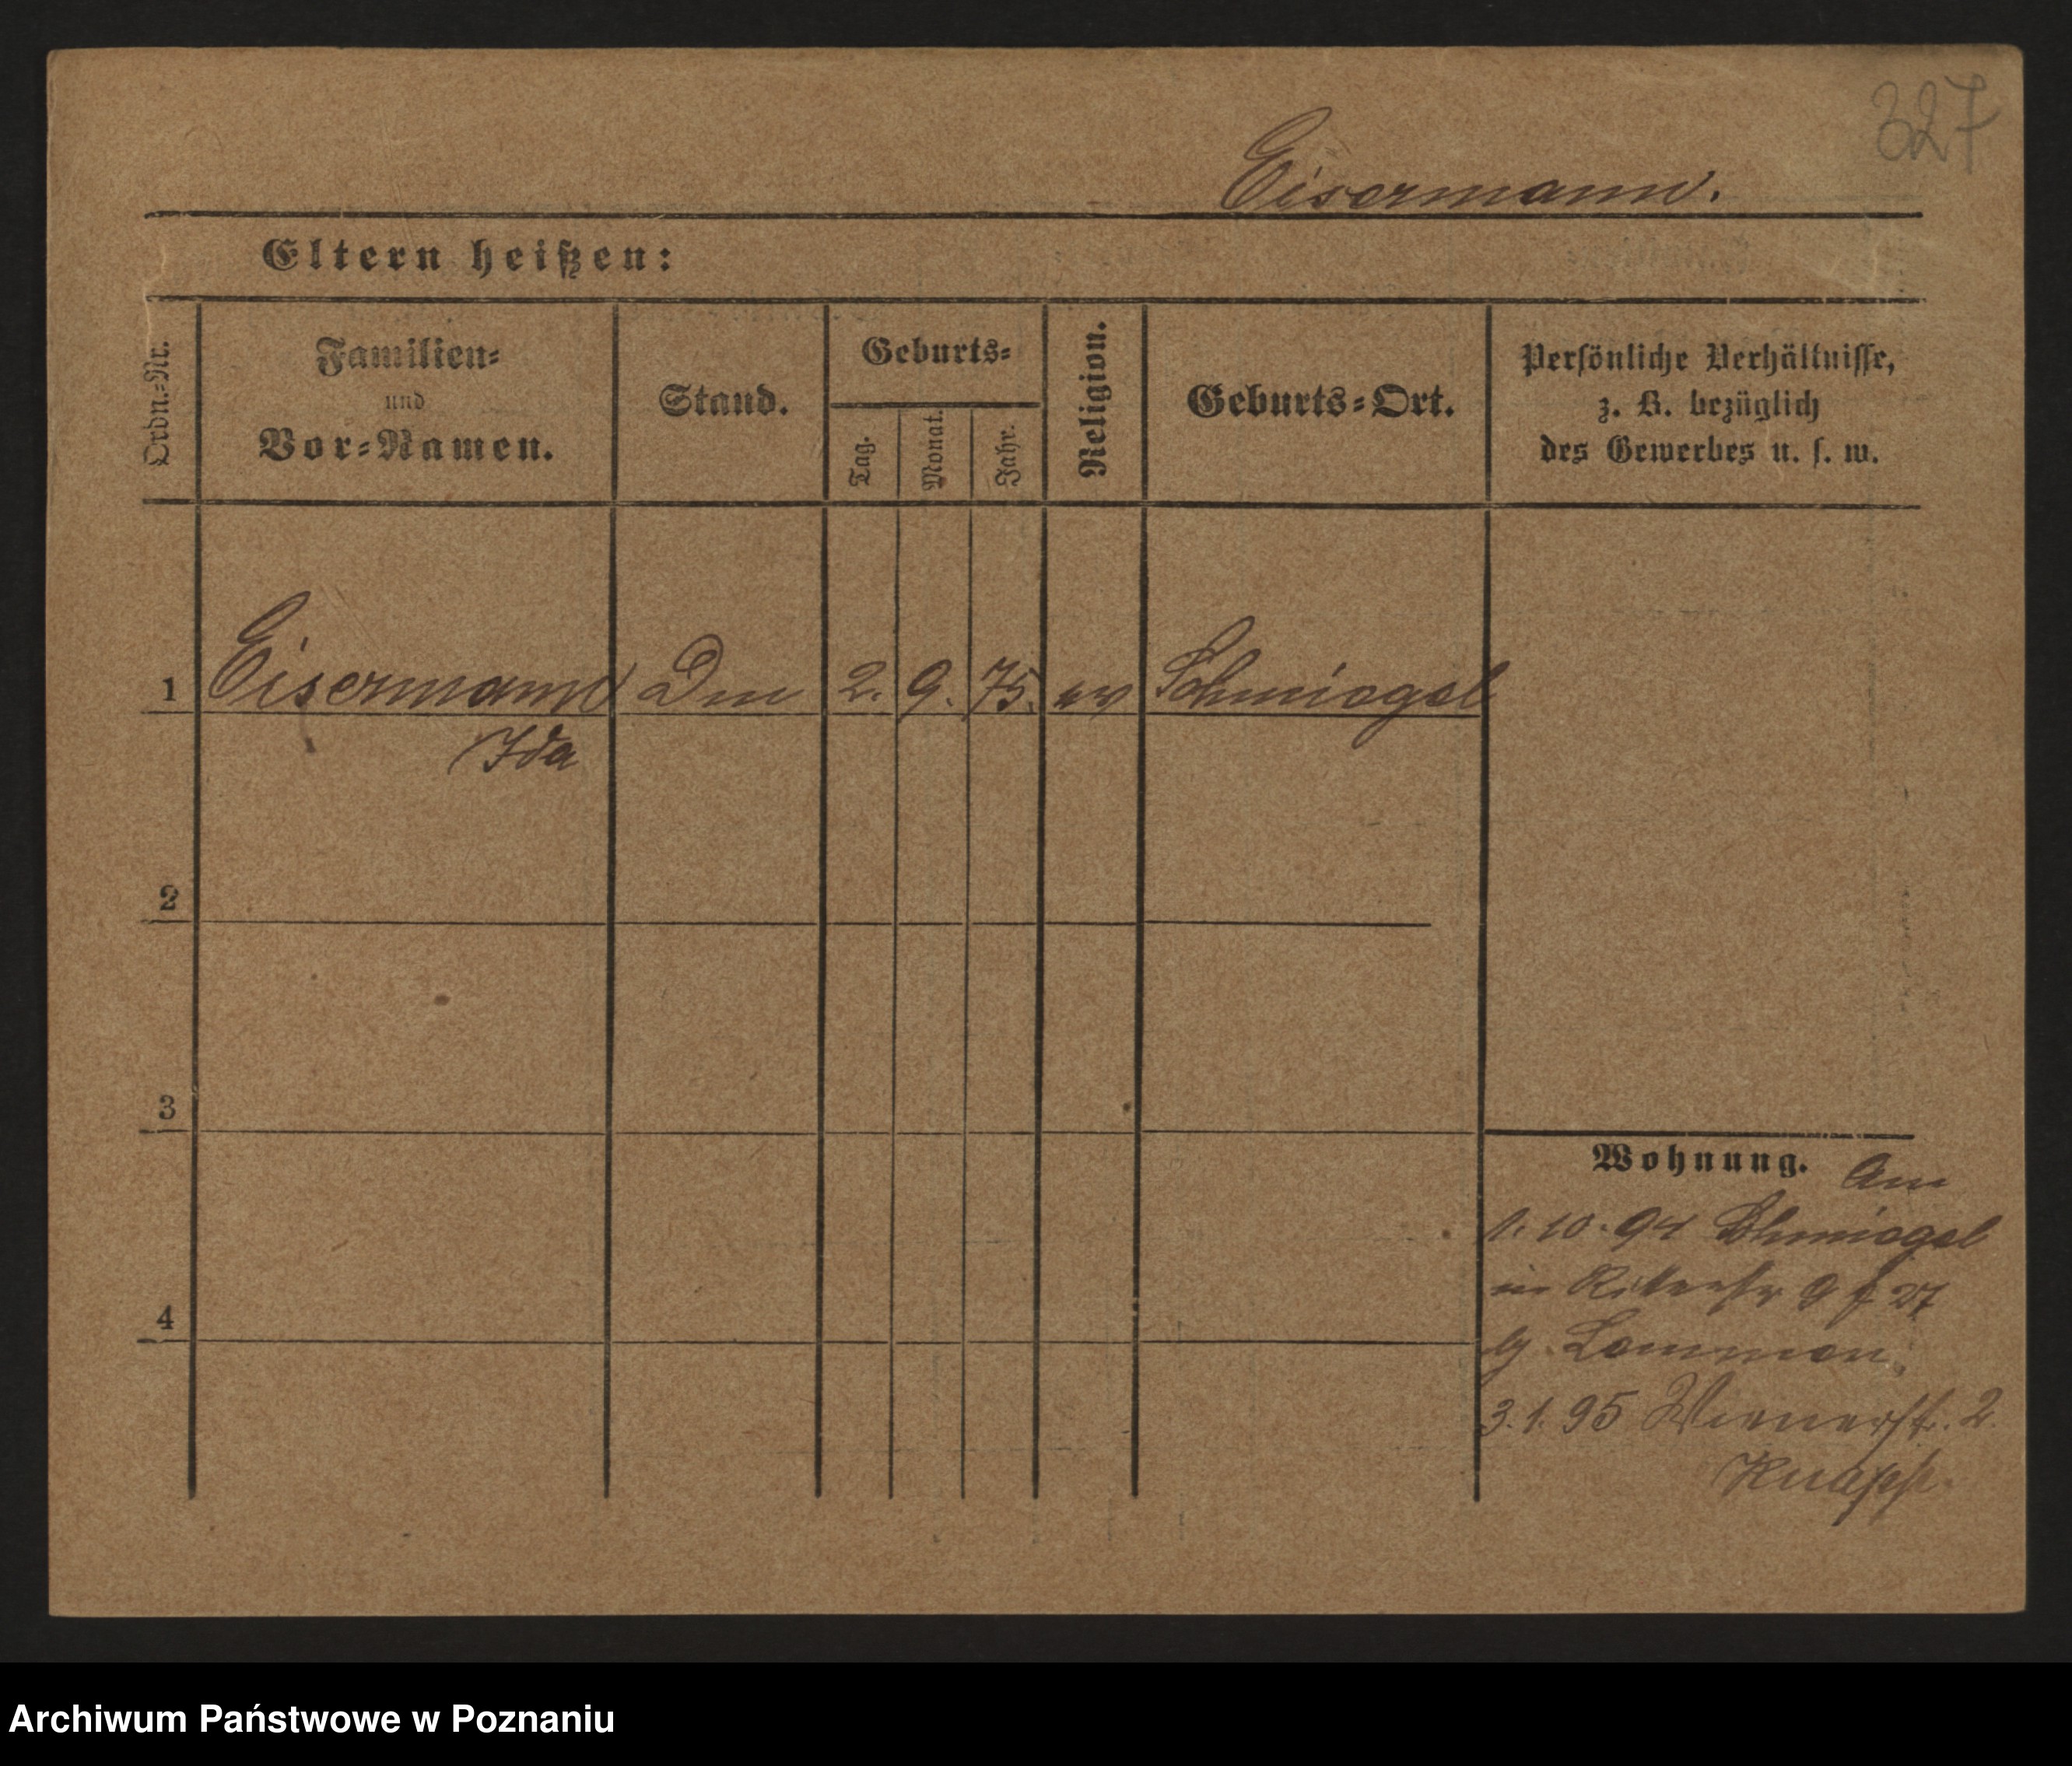 327
Eisermann.
Eltern heißen:
Ordn.-Nr.
Familien-
und
Vor-Namen.
Stand.
Geburts-
Tag.
Monat.
Jahr.
Religion.
Geburts-Ort.
Persönliche Verhältnisse,
z. B. bezüglich
des Gewerbes u. s. w.
1 Eisermann 2. 9. 75. ev Schmiegel
Ida
2
3
Wohnung. Am
1. 10. 94 Schmiegel
in 9 27
4
3. 1. 95 Wienerst. 2
Knapp.
Archiwum Państwowe w Poznaniu